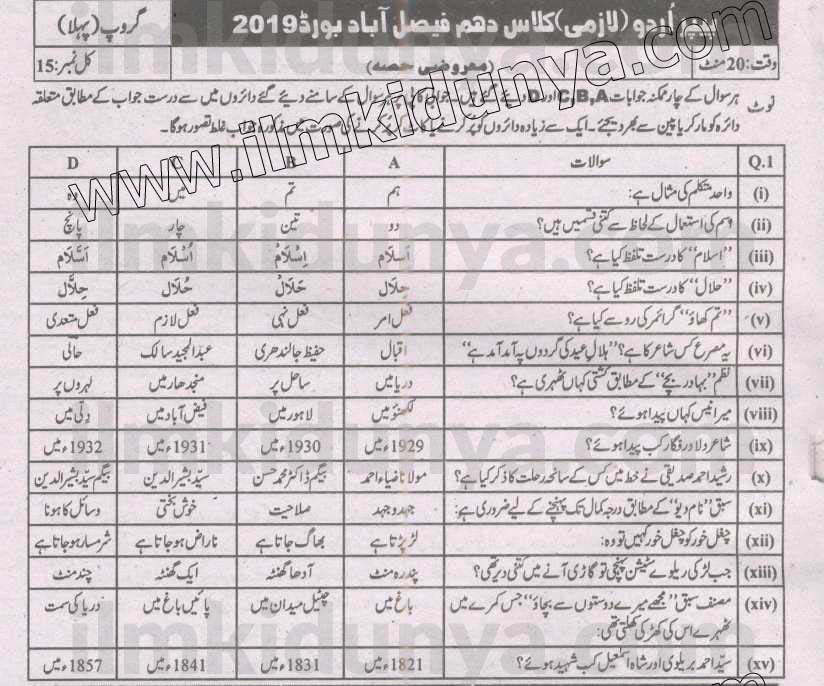 پیپر اُردو (لازمی) کلاس دھم فیصل آباد بورڈ 2019
گروپ (پہلا)
وقت: 20 منٹ
(معروضی حصہ)
کل نمبر: 15
نوٹ ہر سوال کے چار ممکنہ جوابات C,B,A اور D دیئے گئے ہیں۔ جوابی کاپی پر ہر سوال کے سامنے دیئے گئے دائروں میں سے درست جواب کے مطابق متعلقہ
دائرہ کو مارکر یا پین سے بھر دیجئے۔ ایک سے زیادہ دائروں کو پُر کرنے یا کاٹ کر پُر کرنے کی صورت میں مذکورہ جواب غلط تصور ہوگا۔
Q.1 سوالات A B C D
(i) واحد متکلم کی مثال ہے: ہم تم میں وہ
(ii) اِسم کی استعمال کے لحاظ سے کتنی قسمیں ہیں؟ دو تین چار پانچ
(iii) "اسلام" کا درست تلفظ کیا ہے؟ اَسلَام اِسْلَامْ اُسْلَام اَسَّلَام
(iv) "حلال" کا درست تلفظ کیا ہے؟ حِلَال حَلَالْ حُلَال حِلَّال
(v) "تم کھاؤ" گرائمر کی رو سے کیا ہے؟ فعل امر فعل نہی فعل لازم فعل متعدی
(vi) یہ مصرع کس شاعر کا ہے؟ "ہلالِ عید کی گردوں پہ آمد آمد ہے" اقبال حفیظ جالندھری عبدالمجید سالک حالی
(vii) نظم "بہادر بچے" کے مطابق کشتی کہاں ٹھہری ہے؟ دریا میں ساحل پر منجدھار میں لہروں پر
(viii) میر انیس کہاں پیدا ہوئے؟ لکھنؤ میں لاہور میں فیض آباد میں دِلّی میں
(ix) شاعر دلاور فگار کب پیدا ہوئے؟ 1929ء میں 1930ء میں 1931ء میں 1932ء میں
(x) رشید احمد صدیقی نے خط میں کس کے سانحہ رحلت کا ذکر کیا ہے؟ مولانا ضیاء احمد بیگم ڈاکٹر محمد حسن سیّد بشیر الدین بیگم سیّد بشیر الدین
(xi) سبق "نام دیو" کے مطابق درجہ کمال تک پہنچنے کے لیے ضروری ہے: جہد و جہد صلاحیت خوش بختی وسائل کا ہونا
(xii) چغل خور کو چغل خور کہیں تو وہ: لڑ پڑتا ہے بھاگ جاتا ہے ناراض ہو جاتا ہے شرمسار ہو جاتا ہے
(xiii) جب لڑکی ریلوے سٹیشن پہنچی تو گاڑی آنے میں کتنی دیر تھی؟ پندرہ منٹ آدھا گھنٹہ ایک گھنٹہ چند منٹ
(xiv) مصنف سبق "مجھے میرے دوستوں سے بچاؤ" جس کمرے میں باغ میں چٹیل میدان میں پائیں باغ میں دریا کی سمت
ٹھہرے اس کی کھڑکی کھلتی تھی:
(xv) سیّد احمد بریلوی اور شاہ اسمٰعیل کب شہید ہوئے؟ 1821ء میں 1831ء میں 1841ء میں 1857ء میں
www.ilmkidunya.com
ilmkidunya.com
ilmkidunya.com
ilmkidunya.com
ilmkidunya.com